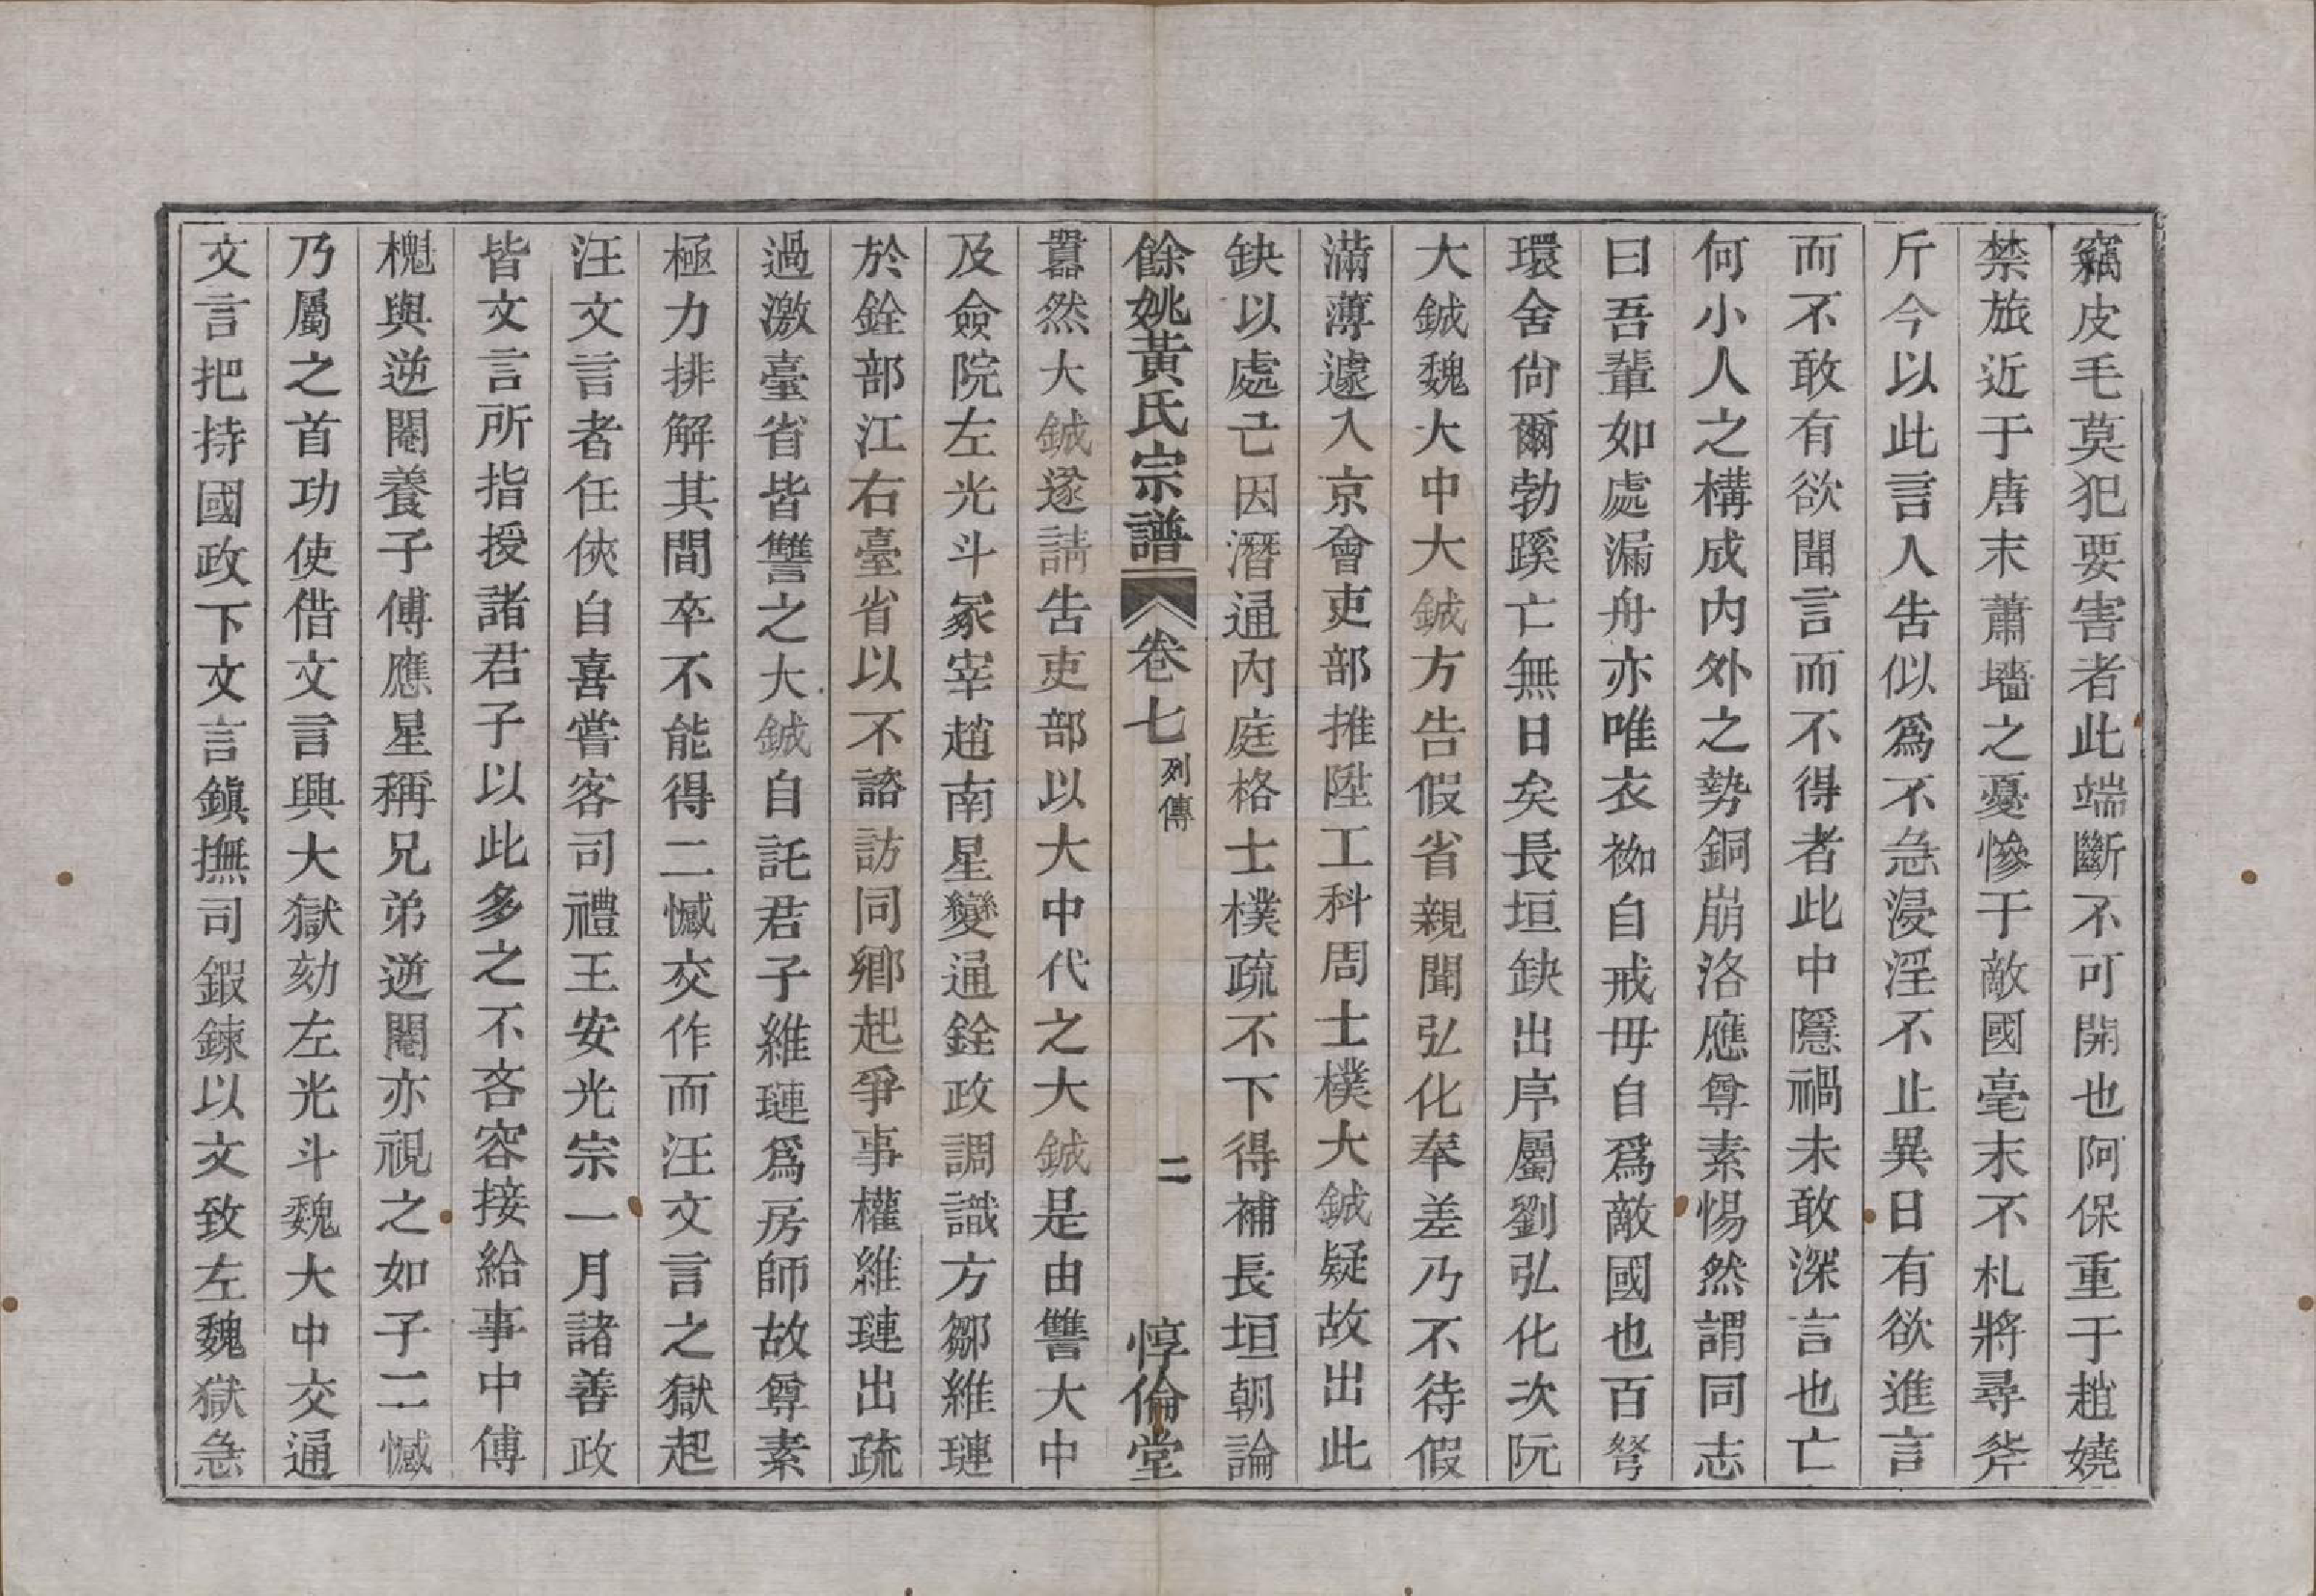 竊皮毛莫犯要害者此端斷不可開也阿保重于趙嬈
禁旅近于唐末蕭墻之憂慘于敵國毫末不札將尋斧
斤今以此言人告似爲不急浸淫不止異日有欲進言
而不敢有欲聞言而不得者此中隱禍未敢深言也亡
何小人之構成內外之勢銅崩洛應尊素惕然謂同志
曰吾輩如處漏舟亦唯衣袽自戒毋自爲敵國也百弩
環舍尙爾勃蹊亡無日矣長垣缺出序屬劉弘化次阮
大鋮魏大中大鋮方告假省親聞弘化奉差乃不待假
滿薄遽入京會吏部推陞工科周士樸大鋮疑故出此
缺以處己因潛通內庭格士樸疏不下得補長垣朝論
餘姚黃氏宗譜 卷七 列傳 二 惇倫堂
嚣然大鋮遂請告吏部以大中代之大鋮是由讐大中
及僉院左光斗冢宰趙南星變通銓政調識方鄒維璉
於銓部江右臺省以不諮訪同鄉起爭事權維璉出疏
過激臺省皆讐之大鋮自託君子維璉爲房師故尊素
極力排解其間卒不能得二憾交作而汪文言之獄起
汪文言者任俠自喜嘗客司禮王安光宗一月諸善政
皆文言所指授諸君子以此多之不吝容接給事中傅
櫆與逆閹養子傅應星稱兄弟逆閹亦視之如子二憾
乃屬之首功使借文言興大獄劾左光斗魏大中交通
文言把持國政下文言鎭撫司鍜鍊以文致左魏獄急